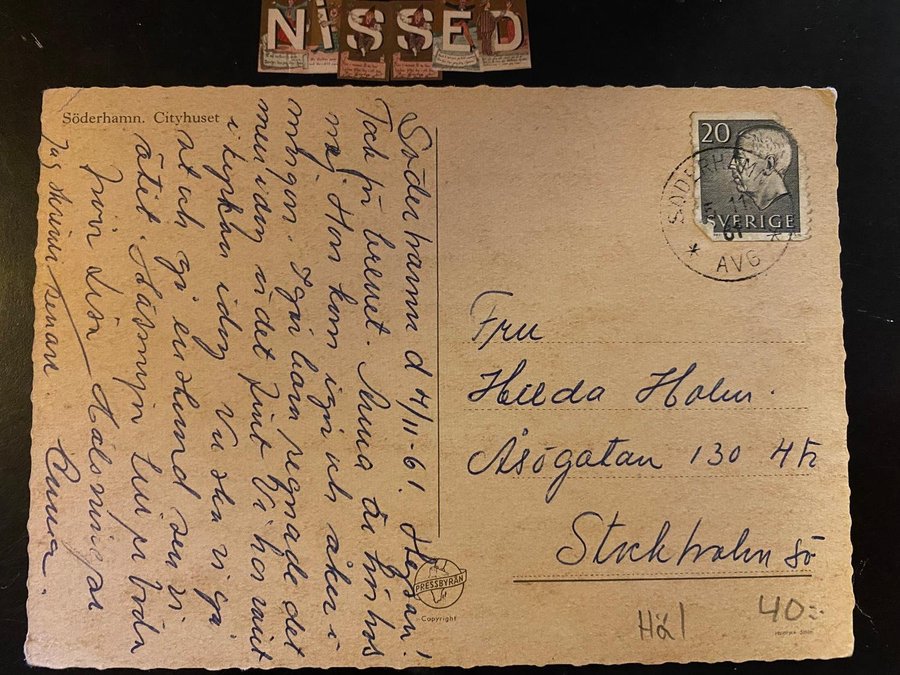 NISSED
Söderhamn. Cityhuset
Söderhamn d 4/11-61. Hejsan!
Tack för brevet. Anna är här hos
mej. Hon kom igår och åker i
morgon. Igår bara regnade det
men idag är det fint Vi har varit
i kyrkan idag Nu ska vi gå
ut och gå en stund sen vi
ätit.
från Hälsningar
Jag skriver senare Anna.
20
SVERIGE
SÖDERHAMN
11
61
* AVG *
Fru
Hilda Holm.
Åsögatan 130 4tr
Stockholm Sö
PRESSBYRÅN
Copyright
Häl 40:-